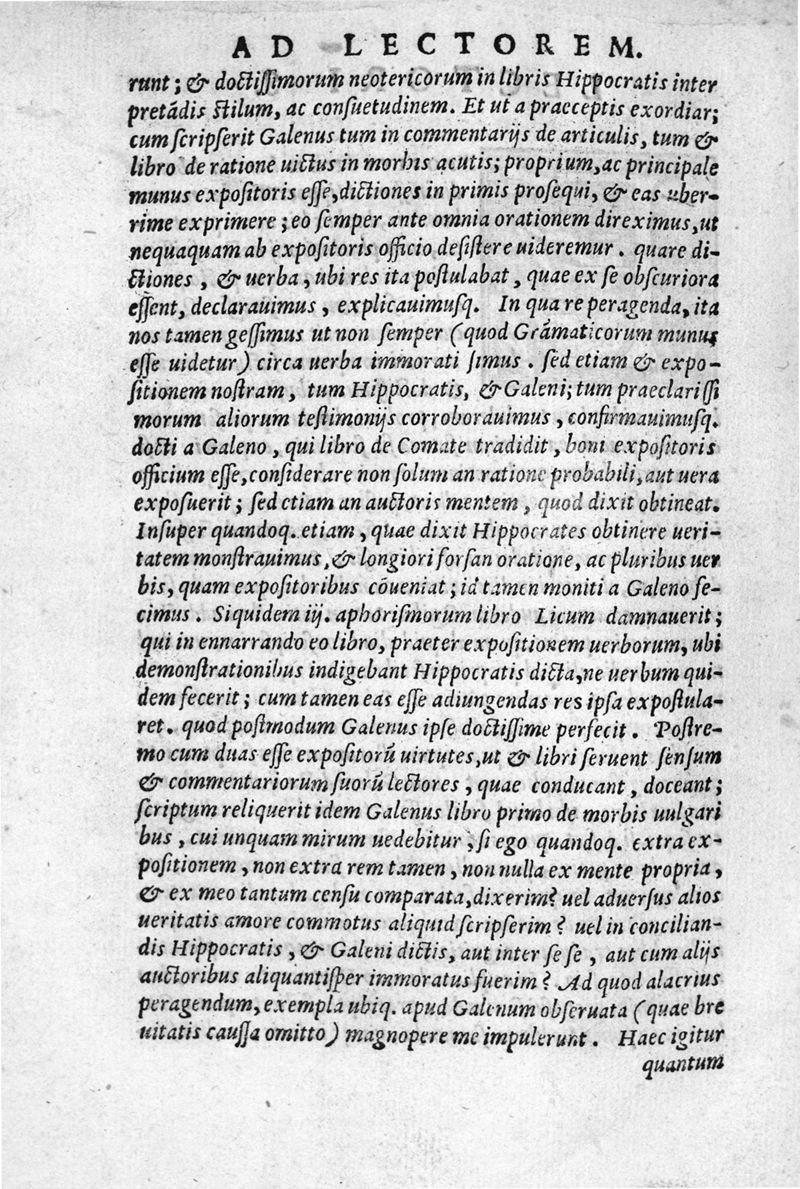 AD LECTOREM.
runt; & doctissimorum neotericorum in libris Hippocratis inter
pretādis stilum, ac consuetudinem. Et ut a praeceptis exordiar;
cum scripserit Galenus tum in commentarijs de articulis, tum &
libro de ratione uictus in morbis acutis; proprium, ac principale
munus expositoris esse, dictiones in primis prosequi, & eas uber-
rime exprimere; eo semper ante omnia orationem direximus, ut
nequaquam ab expositoris officio desistere uideremur. quare di-
ctiones, & uerba, ubi res ita postulabat, quae ex se obscuriora
essent, declarauimus, explicauimusq. In qua re peragenda, ita
nos tamen gessimus ut non semper (quod Grāmaticorum munus
esse uidetur) circa uerba immorati simus. sed etiam & expo-
sitionem nostram, tum Hippocratis, & Galeni; tum praeclarissi
morum aliorum testimonijs corroborauimus, confirmauimusq.
docti a Galeno, qui libro de Comate tradidit, boni expositoris
officium esse, considerare non solum an ratione probabili, aut uera
exposuerit; sed etiam an auctoris mentem, quod dixit obtineat.
Insuper quandoq. etiam, quae dixit Hippocrates obtinere ueri-
tatem monstrauimus, & longiori forsan oratione, ac pluribus uer
bis, quam expositoribus cōueniat; id tamen moniti a Galeno fe-
cimus. Siquidem iij. aphorismorum libro Licum damnauerit;
qui in ennarrando eo libro, praeter expositionem uerborum, ubi
demonstrationibus indigebant Hippocratis dicta, ne uerbum qui-
dem fecerit; cum tamen eas esse adiungendas res ipsa expostula-
ret. quod postmodum Galenus ipse doctissime perfecit. Postre-
mo cum duas esse expositorū uirtutes, ut & libri seruent sensum
& commentariorum suorū lectores, quae conducant, doceant;
scriptum reliquerit idem Galenus libro primo de morbis uulgari
bus, cui unquam mirum uedebitur, si ego quandoq. extra ex-
positionem, non extra rem tamen, non nulla ex mente propria,
& ex meo tantum censu comparata, dixerim? uel aduersus alios
ueritatis amore commotus aliquid scripserim? uel in concilian-
dis Hippocratis, & Galeni dictis, aut inter se se, aut cum alijs
auctoribus aliquantisper immoratus fuerim? Ad quod alacrius
peragendum, exempla ubiq. apud Galenum obseruata (quae bre
uitatis caussa omitto) magnopere me impulerunt. Haec igitur
quantum